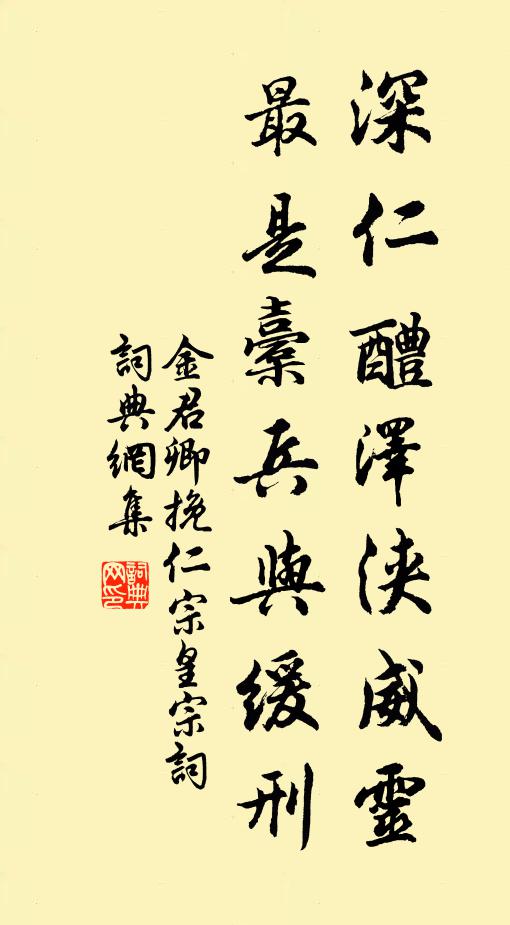 深仁醴澤浹威靈
最是櫜兵與緩刑
金君卿挽仁宗皇宗詞
詞典網集
詞典网印